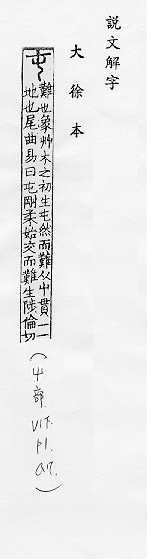 說文解字
大徐本
屯
難也象艸木之初生屯然而難从屮貫一一
地也尾曲易曰屯剛柔始交而難生陟倫切
(屮部
V1下.
P1.